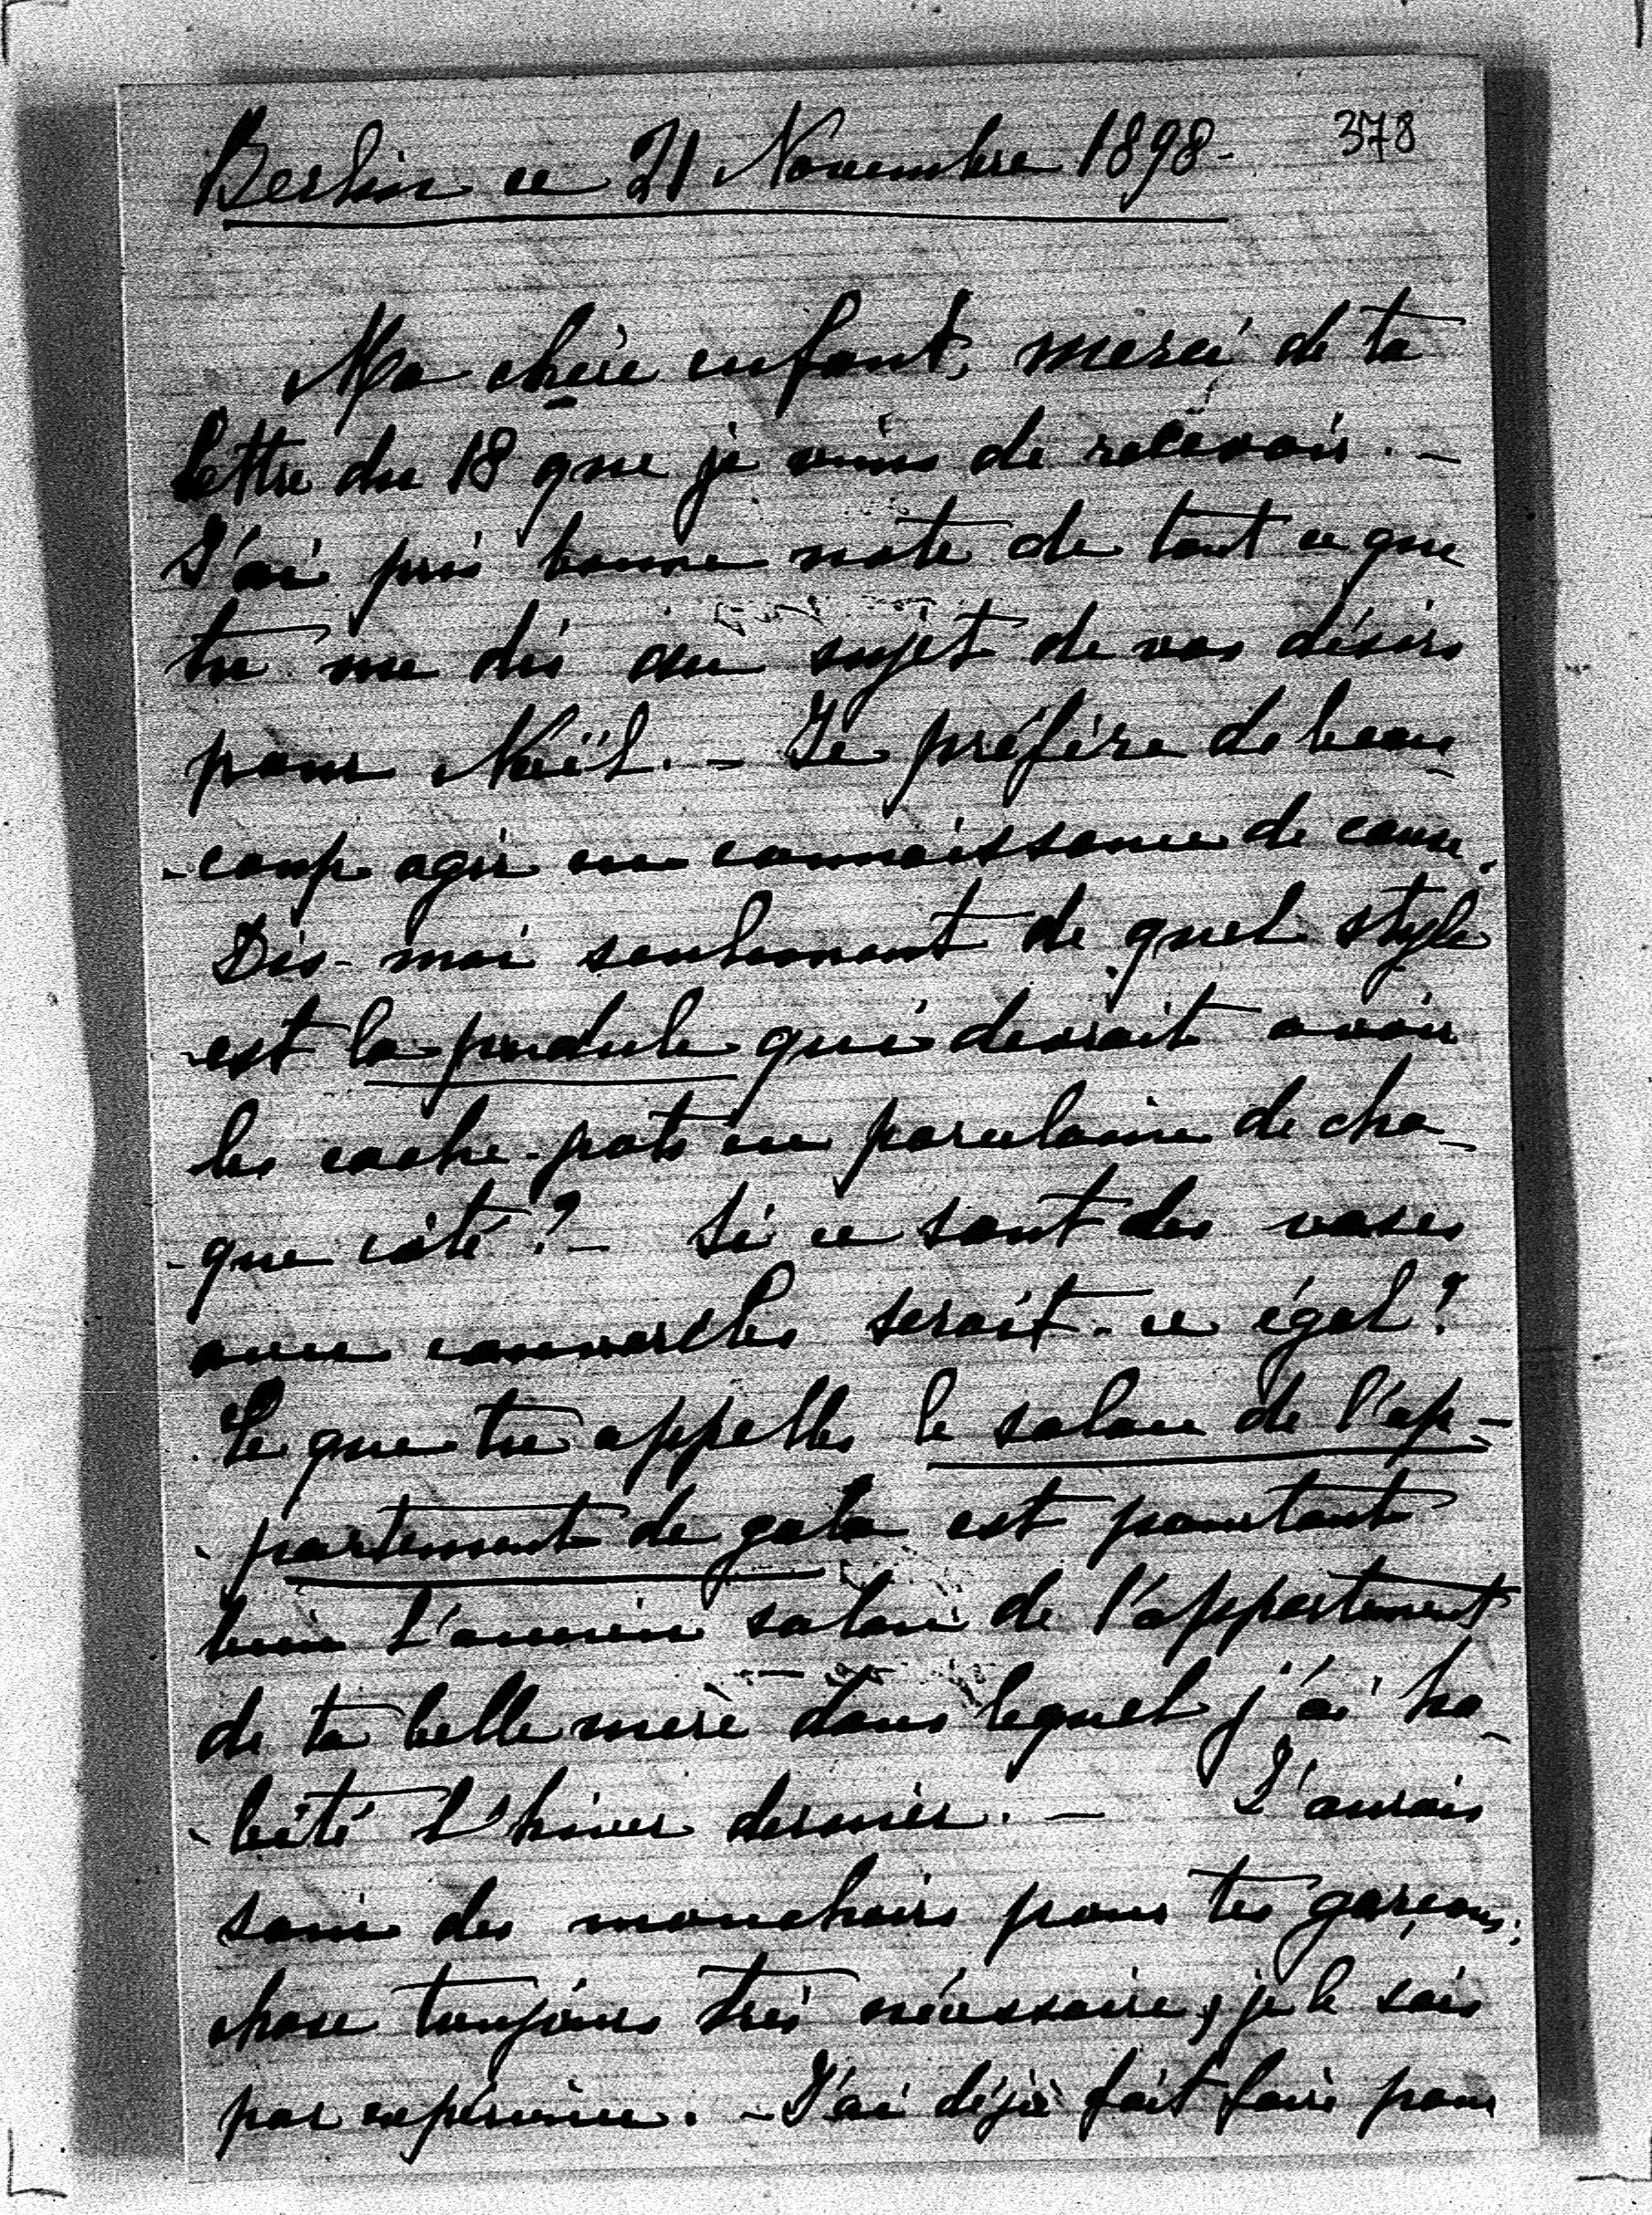 378
Berlin ce 21 Novembre 1898.
Ma chère enfant, merci de ta
lettre du 18 que je viens de recevoir. –
J'ai pris bonne note de tout ce que
tu me dis au sujet de vos désirs
pour Noël. – Je préfère de beau-
-coup agir en connaissance de cause.
Dis-moi seulement de quel style
est la pendule qui devrait avoir
les cache-pots en porcelaine de cha-
-que côté? – Si ce sont des vases
avec couvercles serait-ce égal?
Ce que tu appelles le salon de l'ap-
-partement de gala est pourtant
bien l'ancien salon de l'appartement
de ta belle mère dans lequel j'ai ha-
-bité l'hiver dernier. – J'aurais
soin des mouchoirs pour tes garçons;
chose toujours très nécessaire, je le sais
par expérience. – J'ai déjà fait faire pour